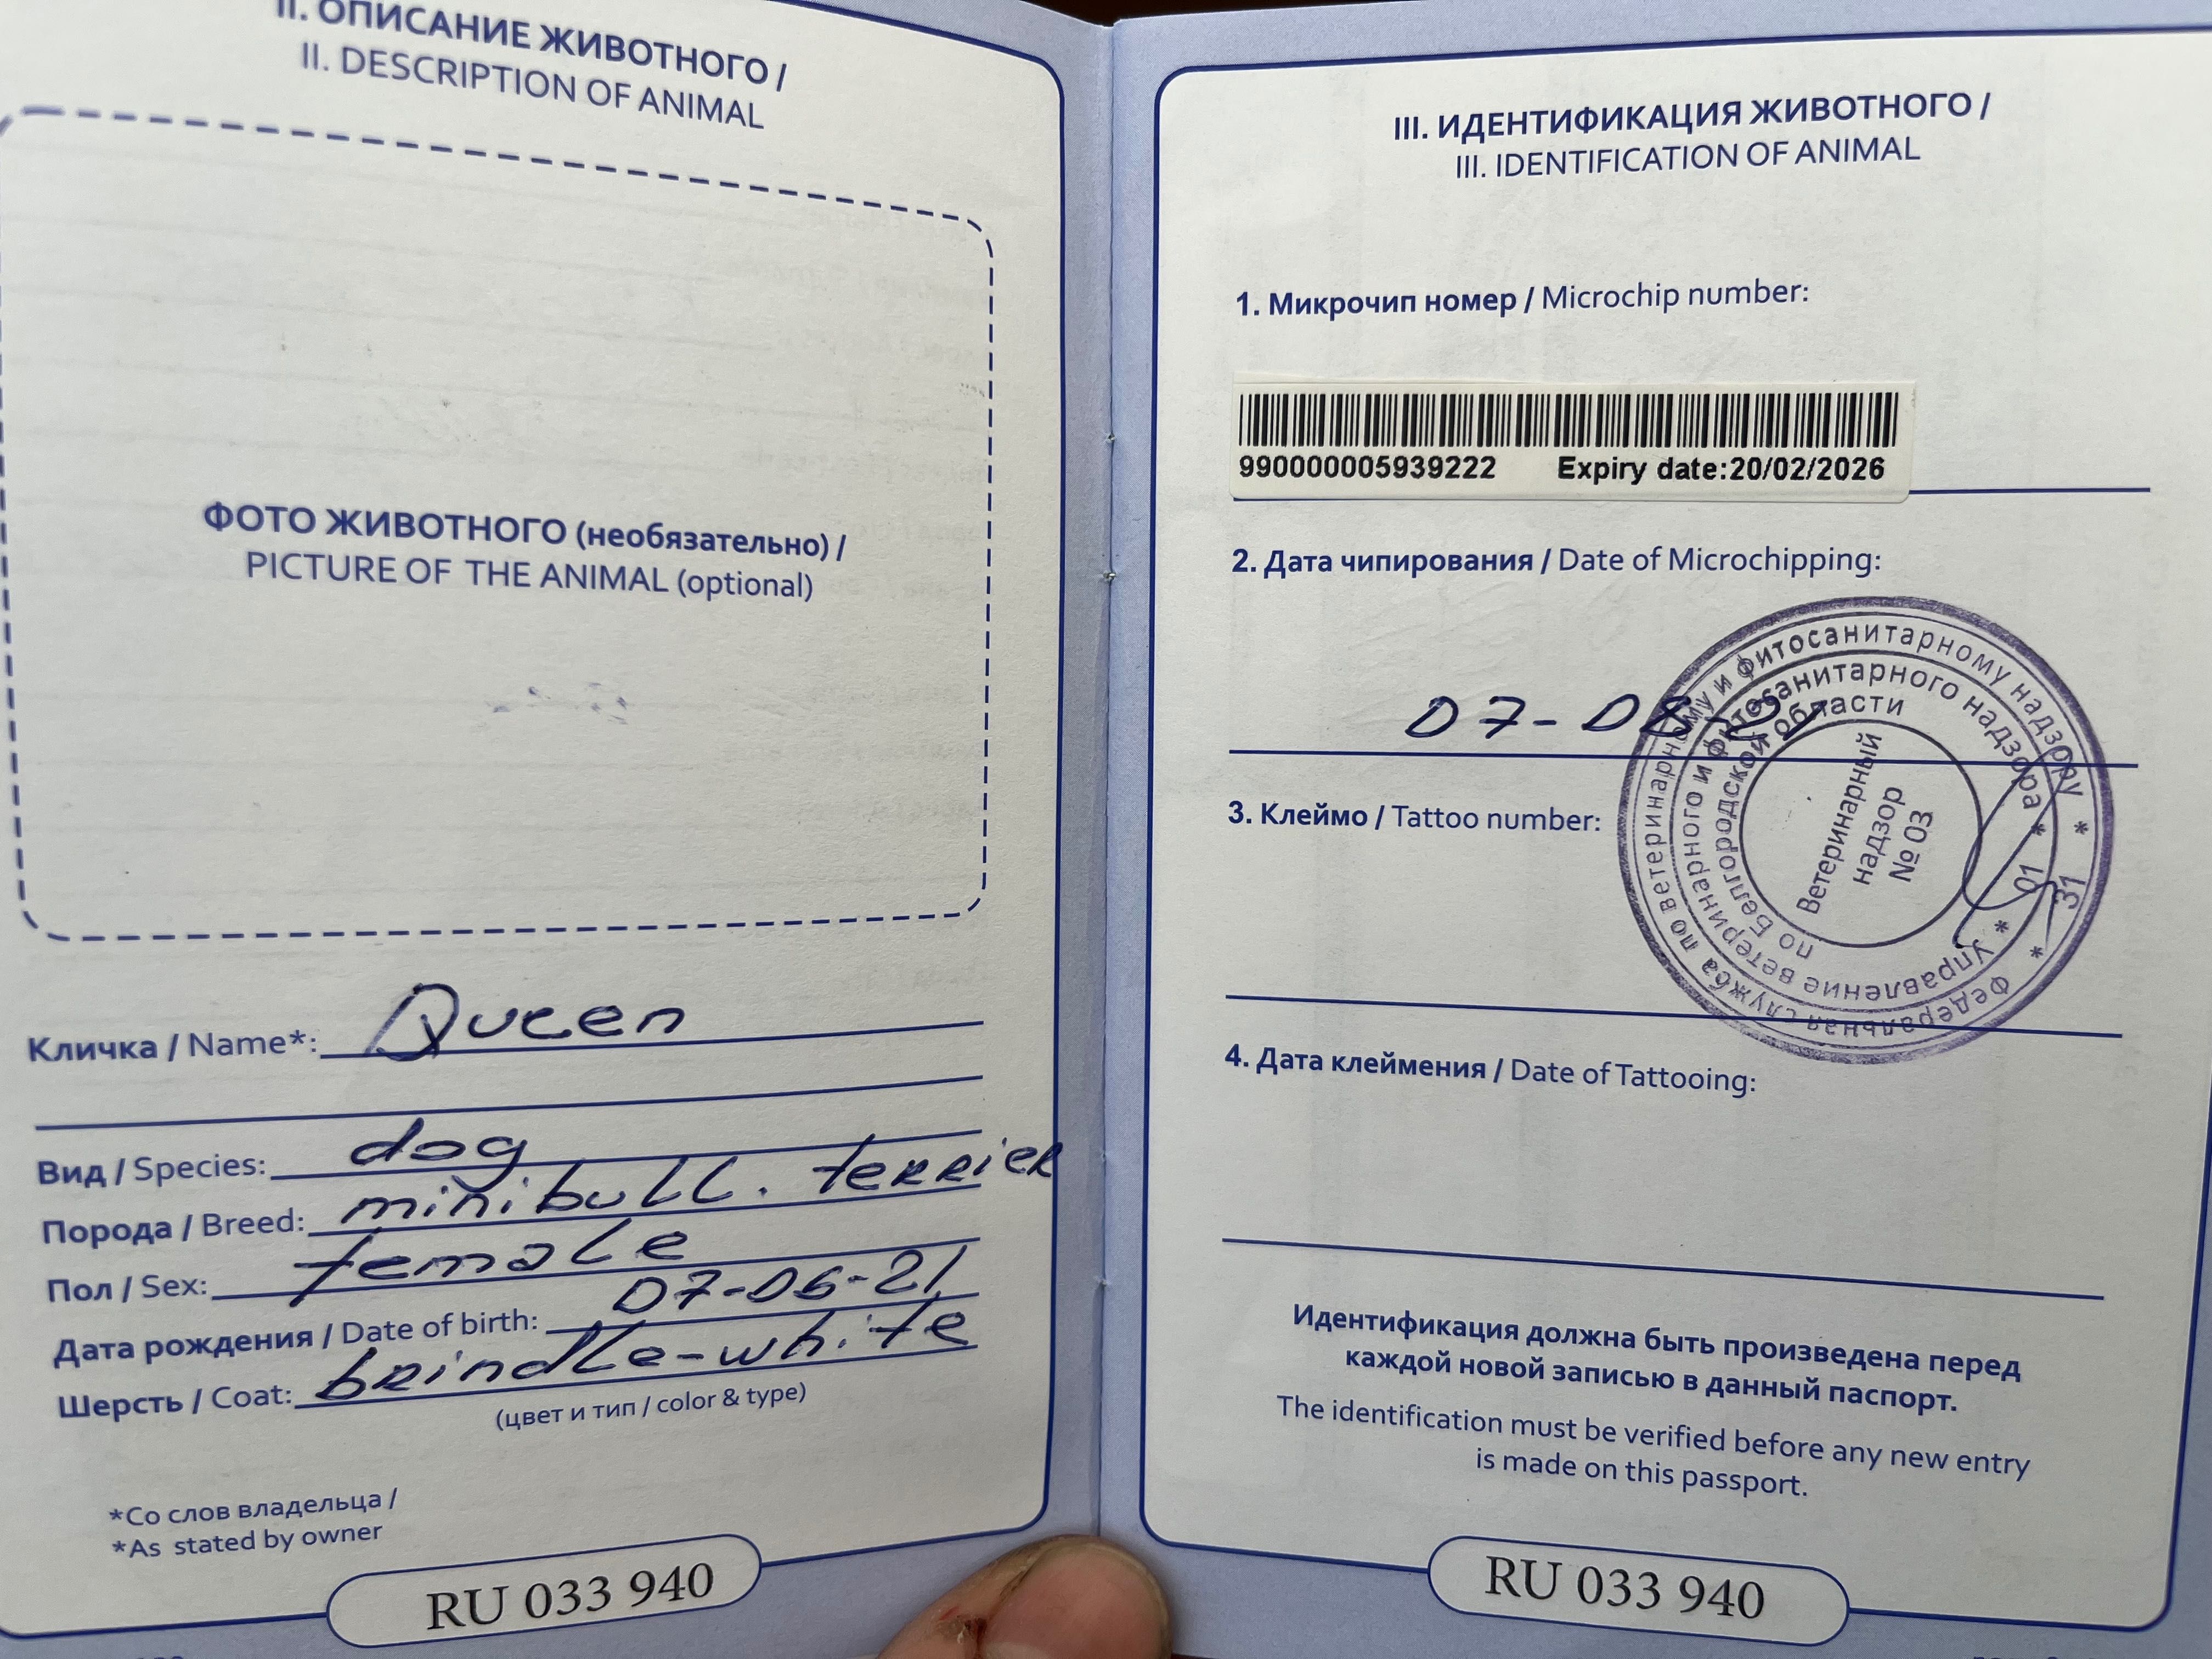 II. ОПИСАНИЕ ЖИВОТНОГО /
II. DESCRIPTION OF ANIMAL
ФОТО ЖИВОТНОГО (необязательно) /
PICTURE OF THE ANIMAL (optional)
Кличка / Name*: Queen
Вид / Species: dog
Порода / Breed: minibull. terrier
Пол / Sex: female
Дата рождения / Date of birth: 07-06-21
Шерсть / Coat: brindle-white
(цвет и тип / color & type)
*Со слов владельца /
*As stated by owner
RU 033 940
III. ИДЕНТИФИКАЦИЯ ЖИВОТНОГО /
III. IDENTIFICATION OF ANIMAL
1. Микрочип номер / Microchip number:
990000005939222 Expiry date:20/02/2026
2. Дата чипирования / Date of Microchipping:
07-08-21
Федеральная служба по ветеринарному и фитосанитарному надзору * 31 *
Управление ветеринарного и фитосанитарного надзора * 01 *
по Белгородской области
Ветеринарный
надзор
№ 03
3. Клеймо / Tattoo number:
4. Дата клеймения / Date of Tattooing:
Идентификация должна быть произведена перед
каждой новой записью в данный паспорт.
The identification must be verified before any new entry
is made on this passport.
RU 033 940